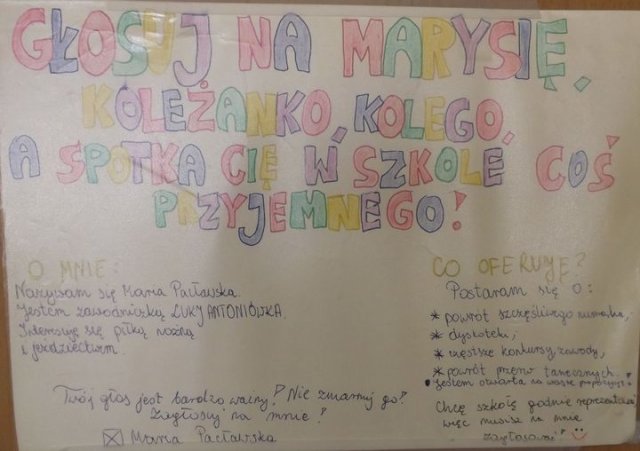 GŁOSUJ NA MARYSIĘ,
KOLEŻANKO, KOLEGO,
A SPOTKA CIĘ W SZKOLE COŚ
PRZYJEMNEGO!
O MNIE:
Nazywam się Maria Pacławska.
Jestem zawodniczką LUKYANTONIÓWKA.
Interesuję się piłką nożną
i jeździectwem.
CO OFERUJĘ?
Postaram się o:
* powrót szczęśliwego numerka,
* dyskoteki,
* częstsze konkursy, zawody,
* powrót przerw tanecznych.
• Jestem otwarta na wasze propozycje.
Chcę szkołę godnie reprezentować
więc musisz na mnie
zagłosować!
Twój głos jest bardzo ważny! Nie zmarnuj go!
Zagłosuj na mnie!
Maria Pacławska